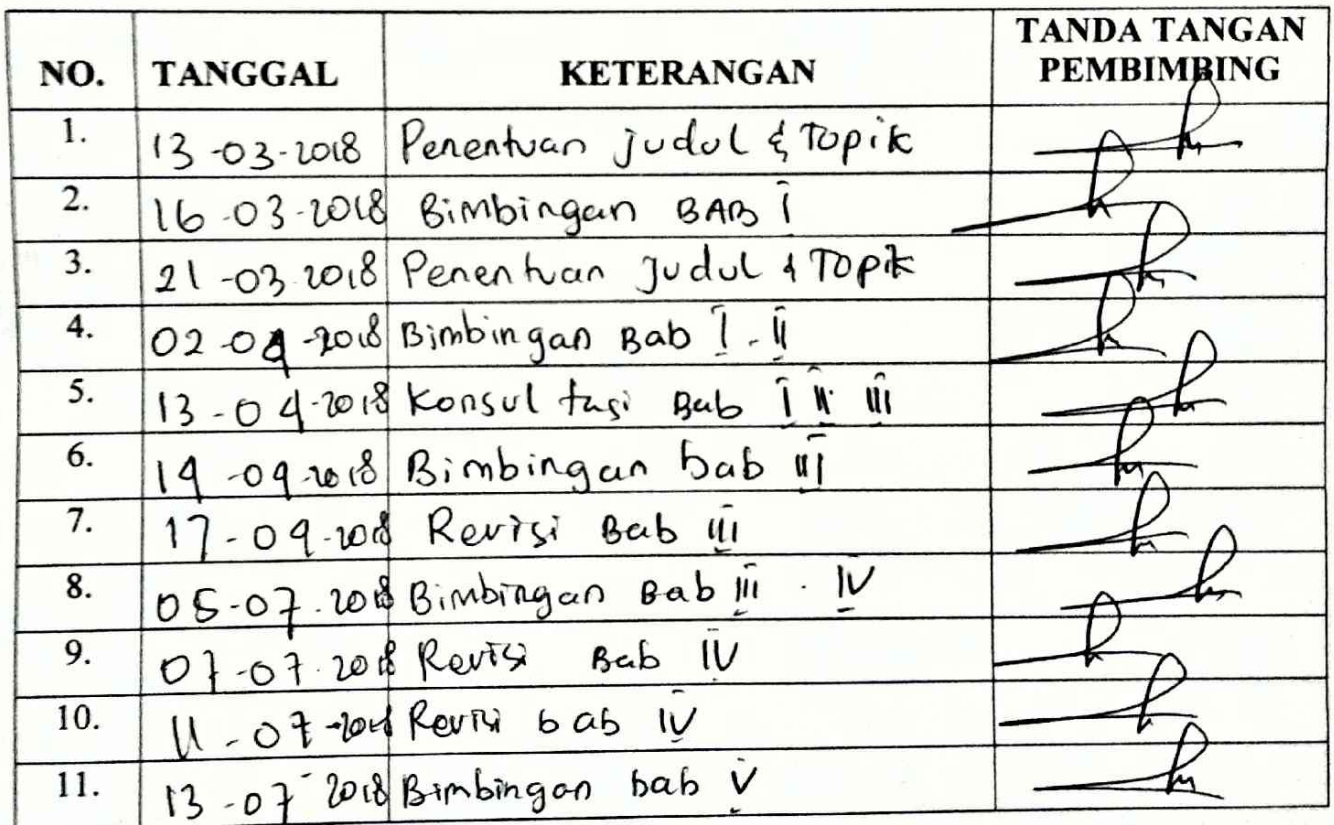 NO. TANGGAL KETERANGAN TANDA TANGAN PEMBIMBING
1. 13-03-2018 Penentuan judul & Topik
2. 16-03-2018 Bimbingan BAB I
3. 21-03-2018 Penentuan Judul & Topik
4. 02-04-2018 Bimbingan Bab I - II
5. 13-04-2018 Konsultasi Bab I II III
6. 14-04-2018 Bimbingan bab III
7. 17-04-2018 Revisi Bab III
8. 05-07-2018 Bimbingan Bab III - IV
9. 07-07-2018 Revisi Bab IV
10. 11-07-2018 Revisi bab IV
11. 13-07-2018 Bimbingan bab V